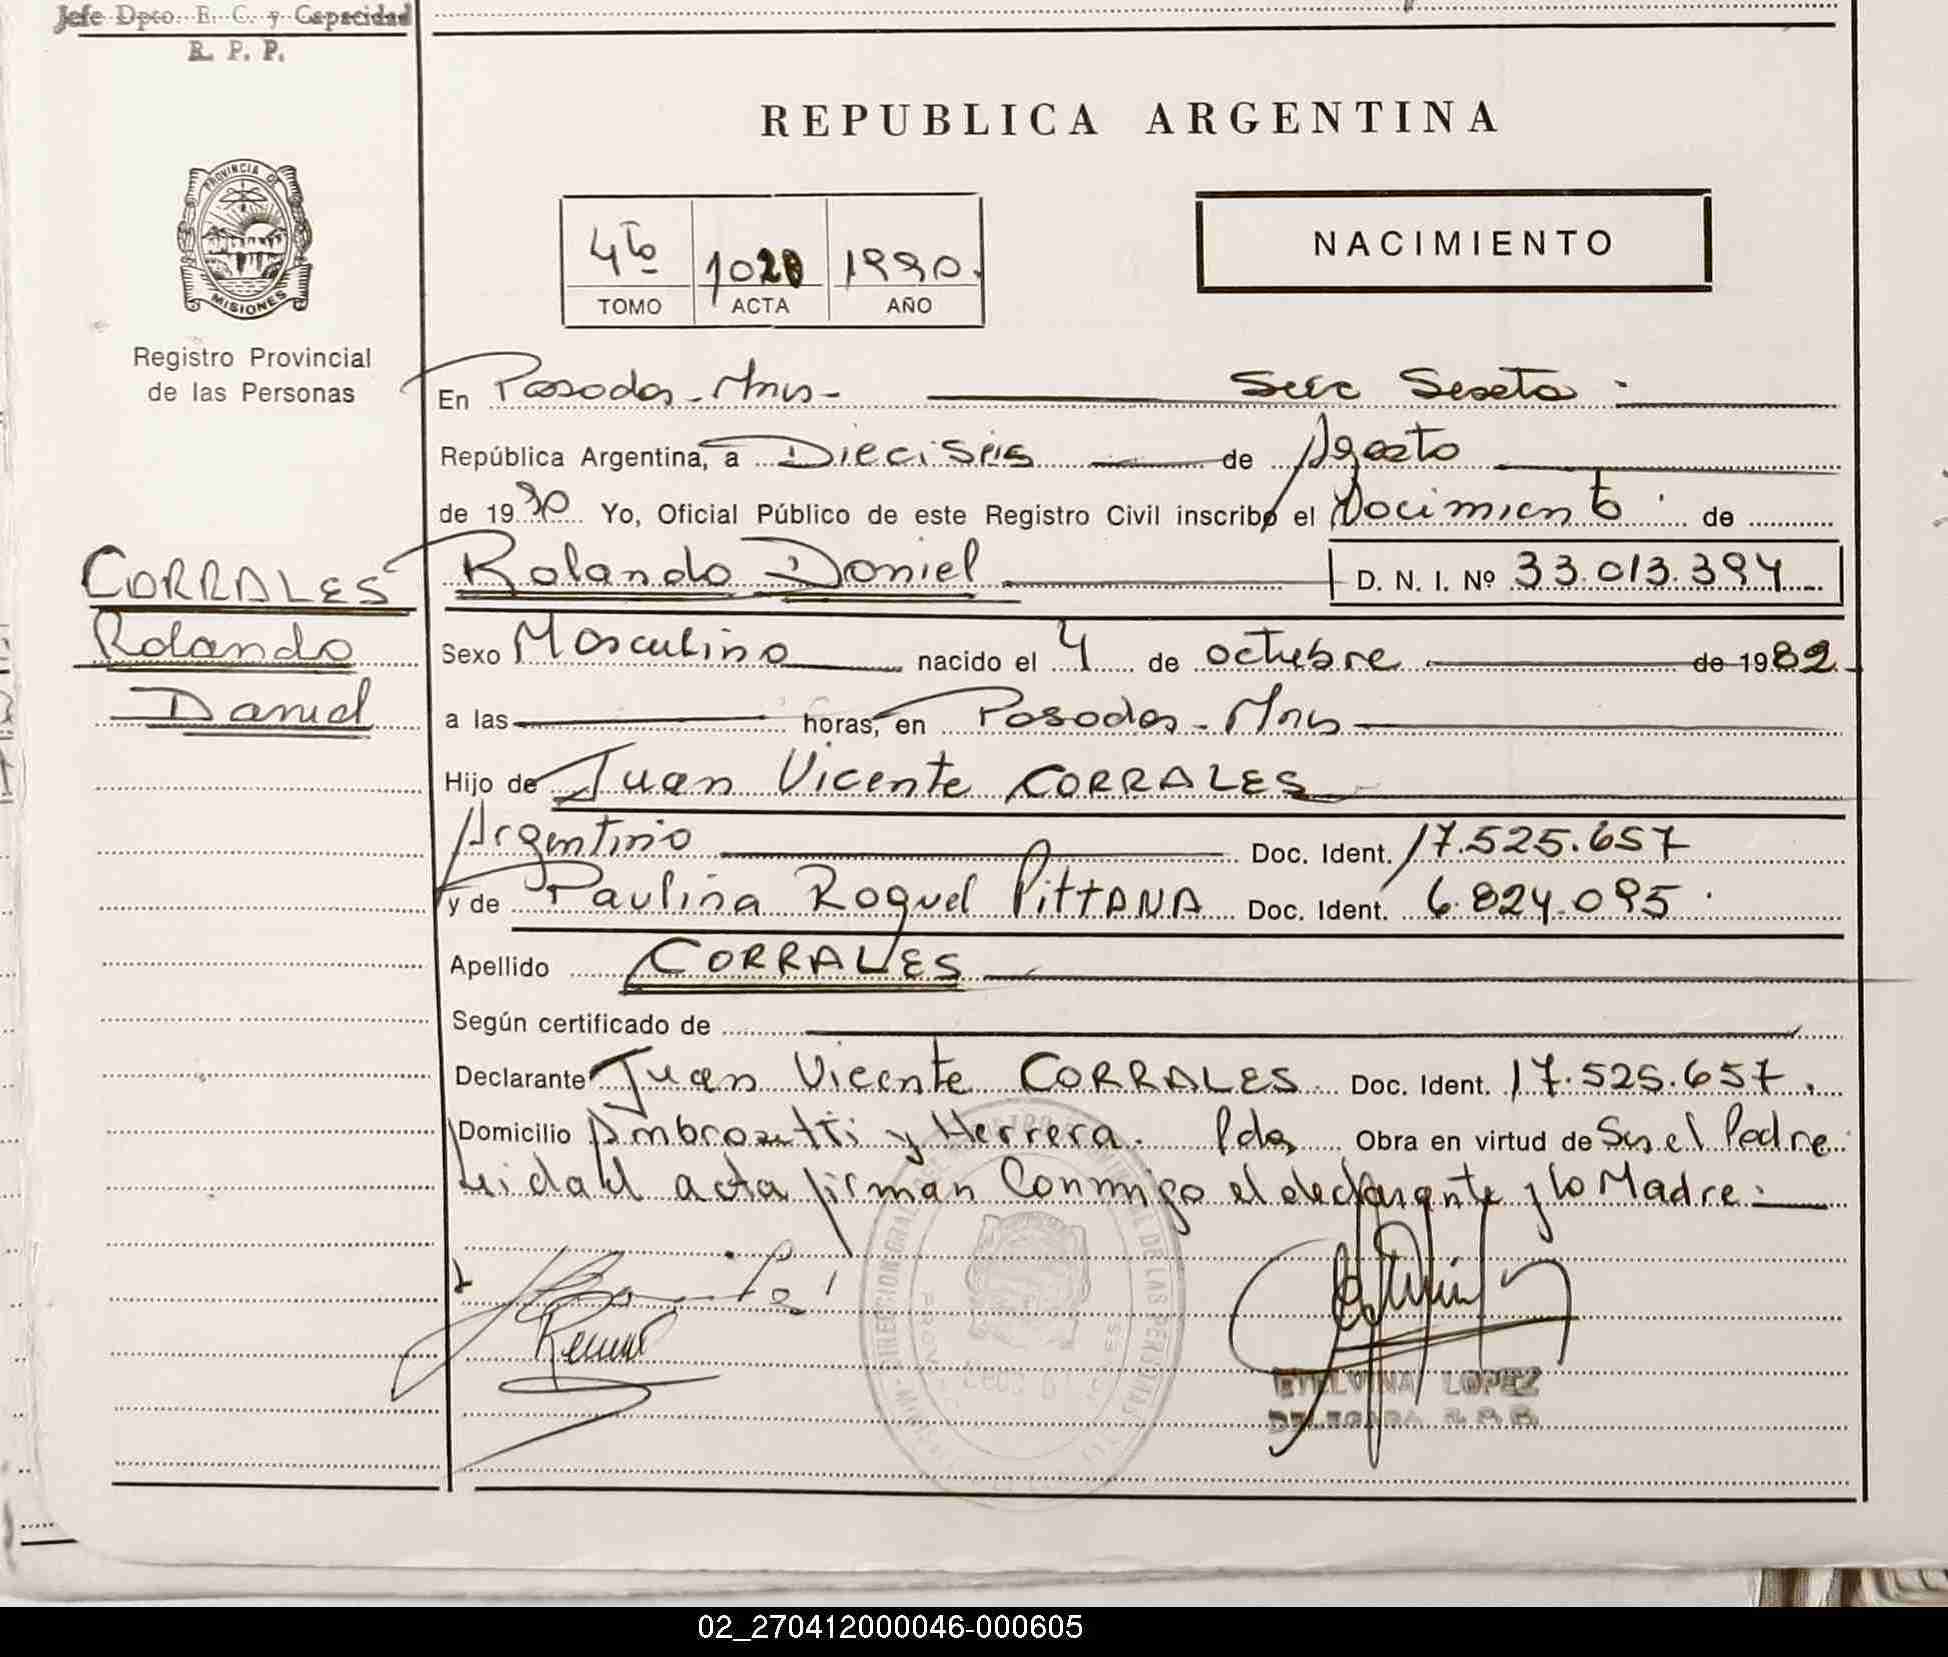 Jefe Dpto. E. C. y Capacidad
R. P. P.
REPUBLICA ARGENTINA
PROVINCIA DE
MISIONES
Registro Provincial
de las Personas
4to 1020 1990.
TOMO ACTA AÑO
NACIMIENTO
En Posadas - Mnes - Secc Sexta
República Argentina, a Dieciséis de Agosto
de 1990 Yo, Oficial Público de este Registro Civil inscribo el Nacimiento de
CORRALES Rolando Daniel D. N. I. Nº 33.013.394
Rolando Sexo Masculino nacido el 4 de octubre de 1982
Daniel a las horas, en Posadas - Mnes
Hijo de Juan Vicente CORRALES
Argentino Doc. Ident. 17.525.657
y de Paulina Raquel PITTANA Doc. Ident. 6.824.095
Apellido CORRALES
Según certificado de
Declarante Juan Vicente CORRALES Doc. Ident. 17.525.657.
Domicilio Ambrosetti y Herrera. Pdas Obra en virtud de Ser el Padre
acta firman Conmigo el declarante y la Madre
ETELVINA LOPEZ
DELEGADA R. P. P.
02_270412000046-000605